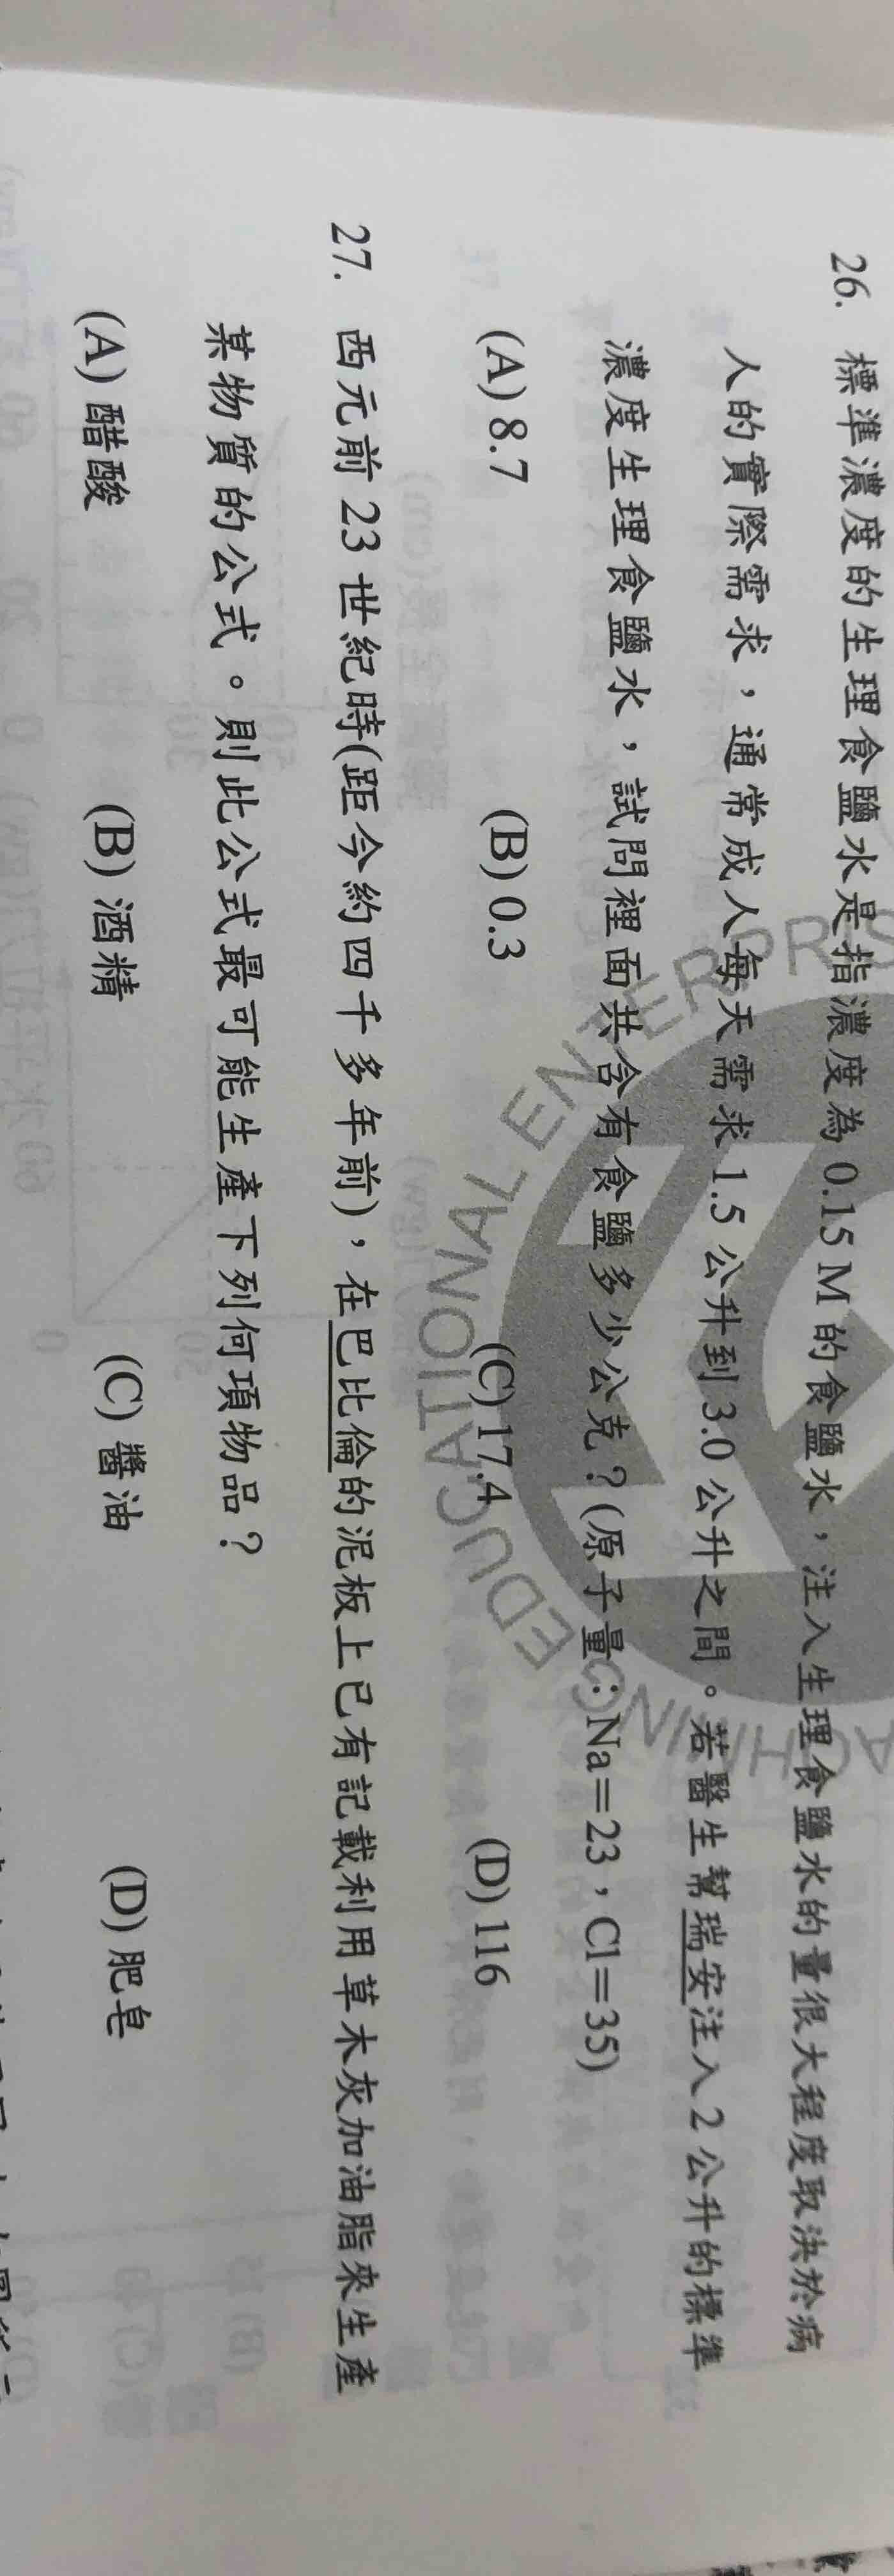 26. 標準濃度的生理食鹽水是指濃度為 0.15 M 的食鹽水，注入生理食鹽水的量很大程度取決於病
人的實際需求，通常成人每天需求 1.5 公升到 3.0 公升之間。若醫生幫瑞安注入 2 公升的標準
濃度生理食鹽水，試問裡面共含有食鹽多少公克？(原子量：Na＝23，Cl＝35)
(A) 8.7 (B) 0.3 (C) 17.4 (D) 116
27. 西元前 23 世紀時(距今約四千多年前)，在巴比倫的泥板上已有記載利用草木灰加油脂來生產
某物質的公式。則此公式最可能生產下列何項物品？
(A) 醋酸 (B) 酒精 (C) 醬油 (D) 肥皂